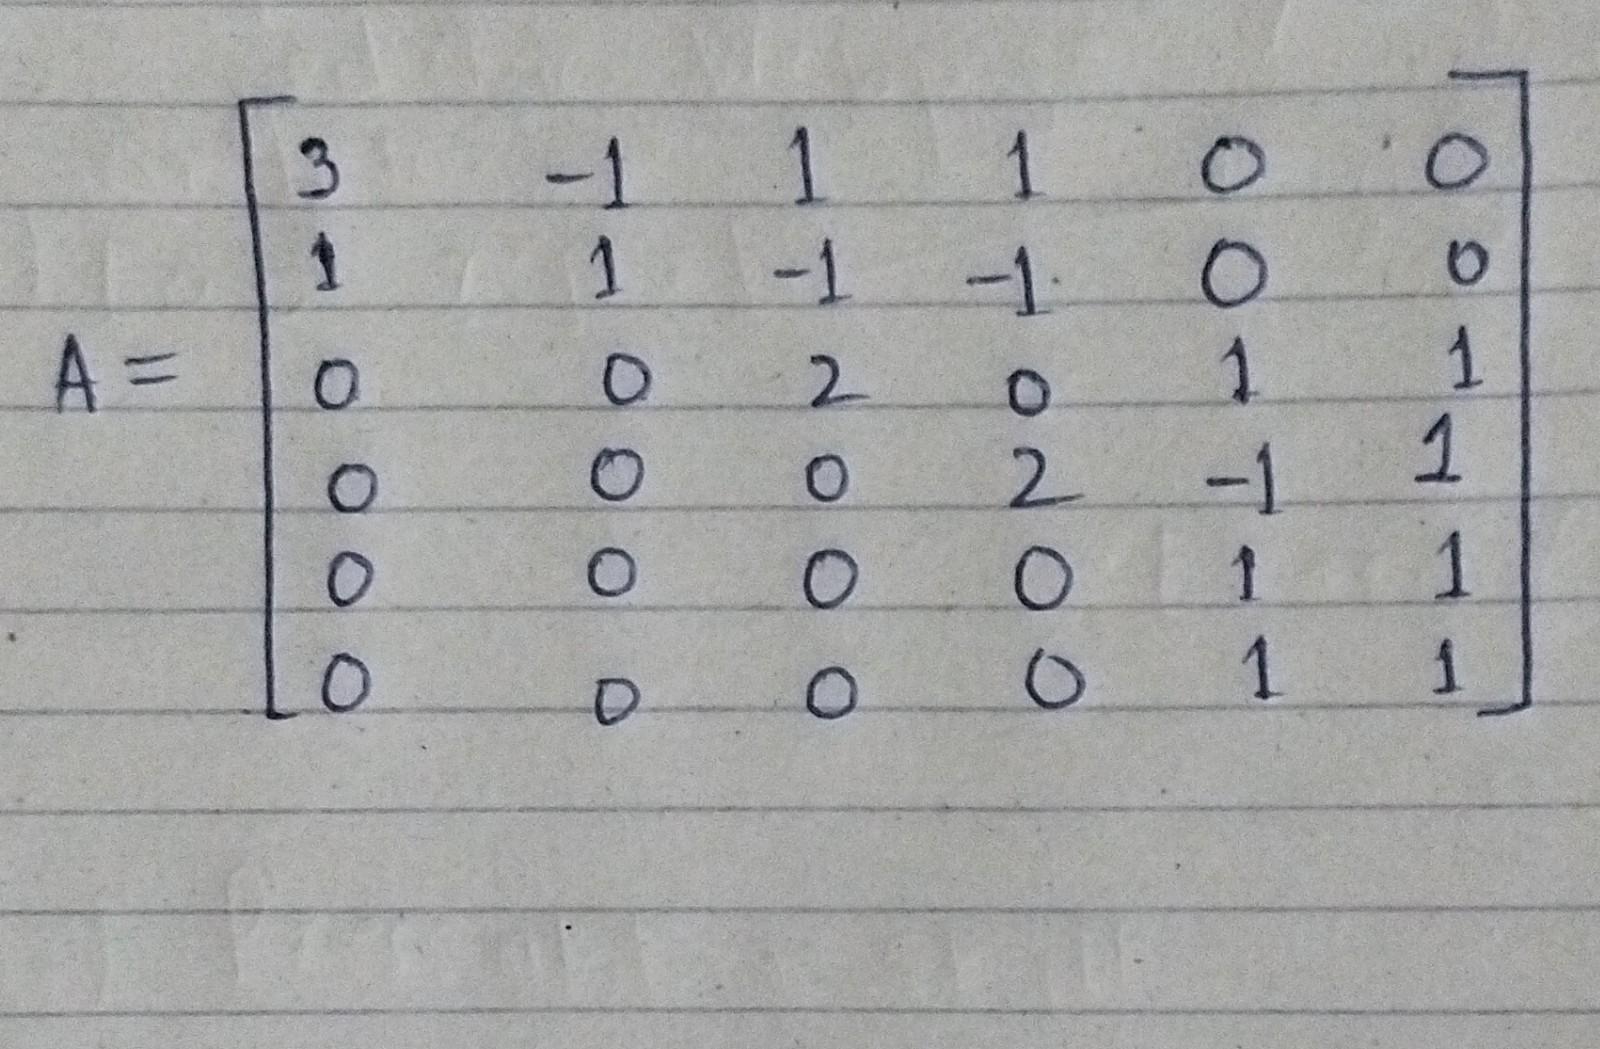 3 -1 1 1 0 0
1 1 -1 -1 0 0
A = 0 0 2 0 1 1
0 0 0 2 -1 1
0 0 0 0 1 1
0 0 0 0 1 1